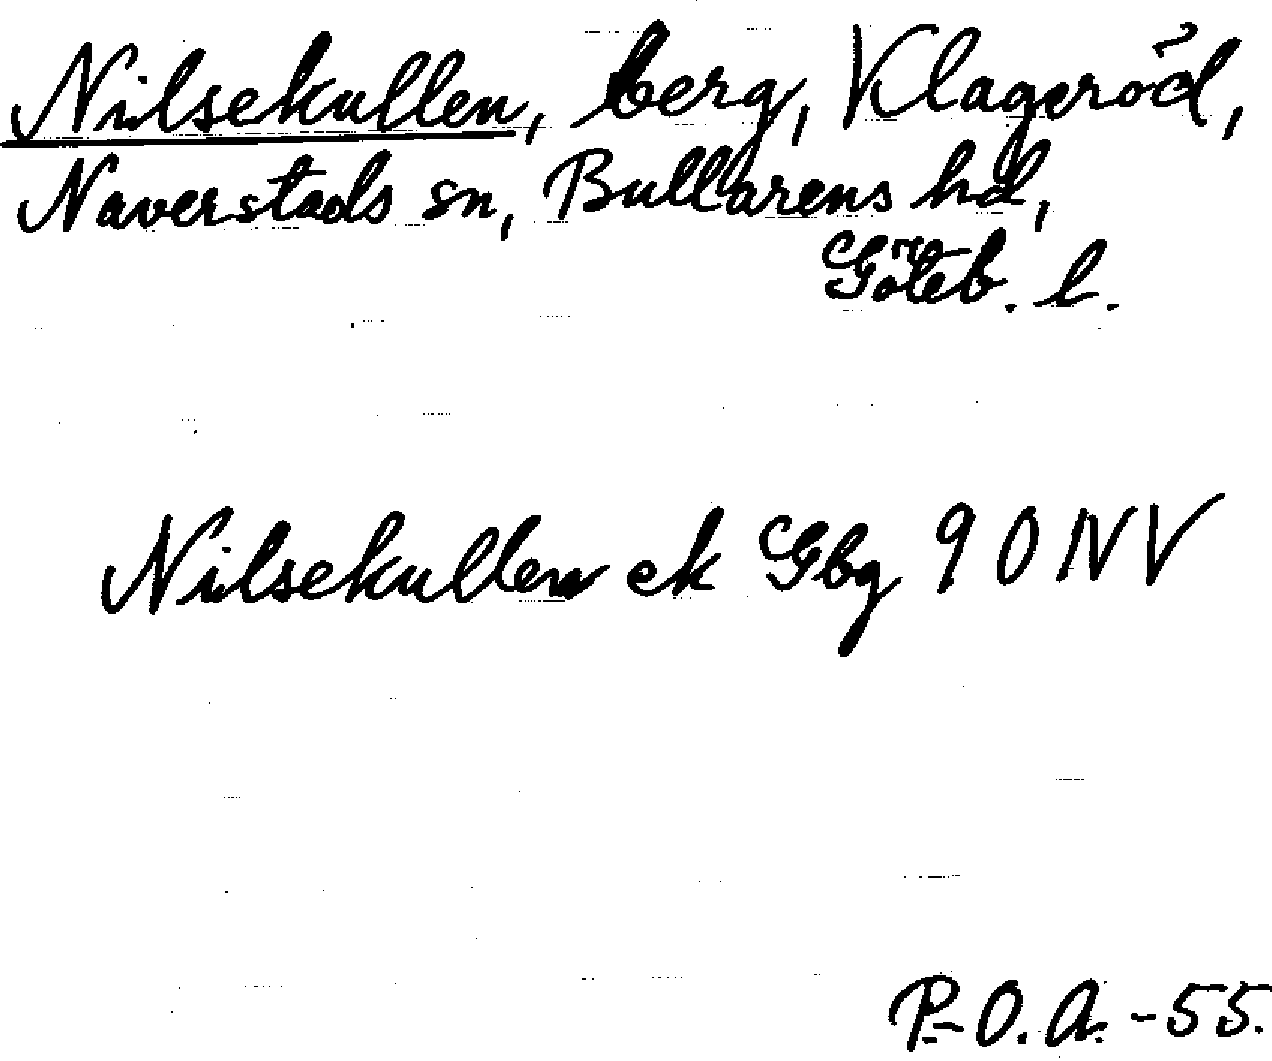 Nilsekullen, berg, Klageröd,
Naverstads sn, Bullarens hd,
Göteb. l.
Nilsekullen ek Gbg 90 NV
P-O. A. -55.